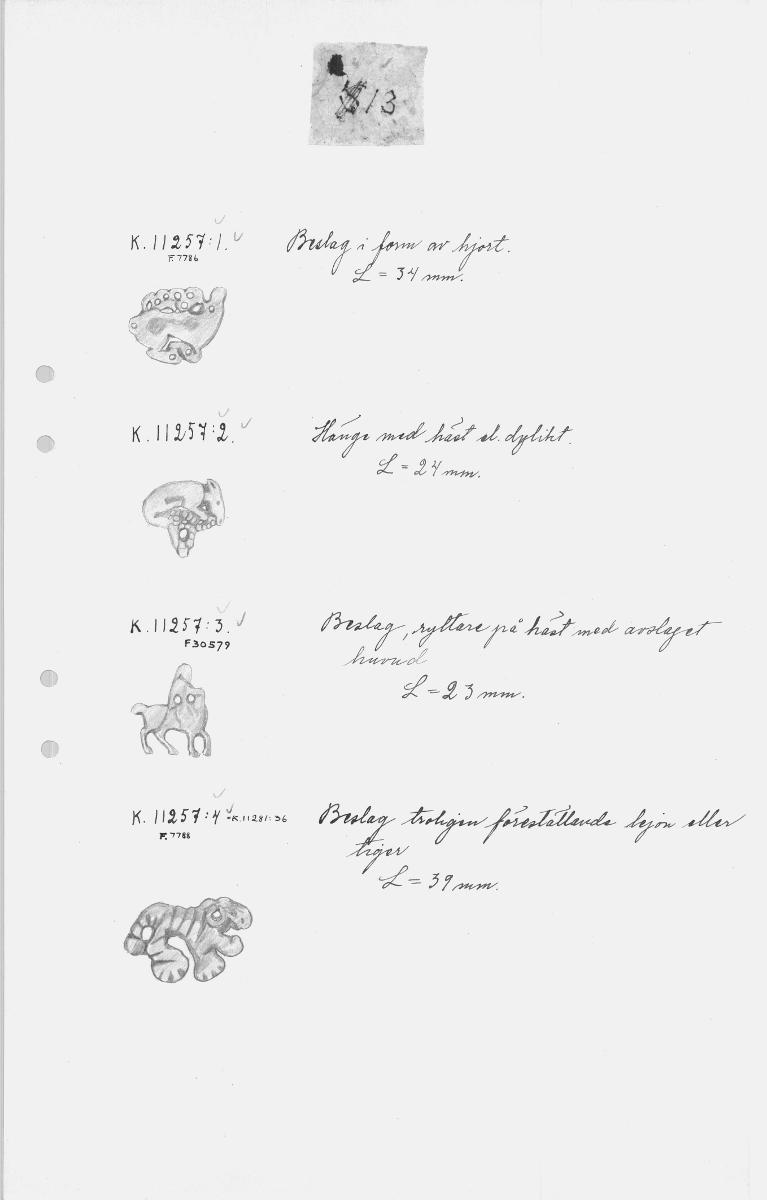 13
K. 11257:1. Beslag i form av hjort.
F. 7786
L = 34 mm.
K. 11257:2. Hänge med häst el. dylikt.
L = 24 mm.
K. 11257:3. Beslag, ryttare på häst med avslaget
F30579
huvud
L = 23 mm.
K. 11257:4 =K.11281:36 Beslag troligen föreställande lejon eller
F. 7788
tiger
L = 39 mm.